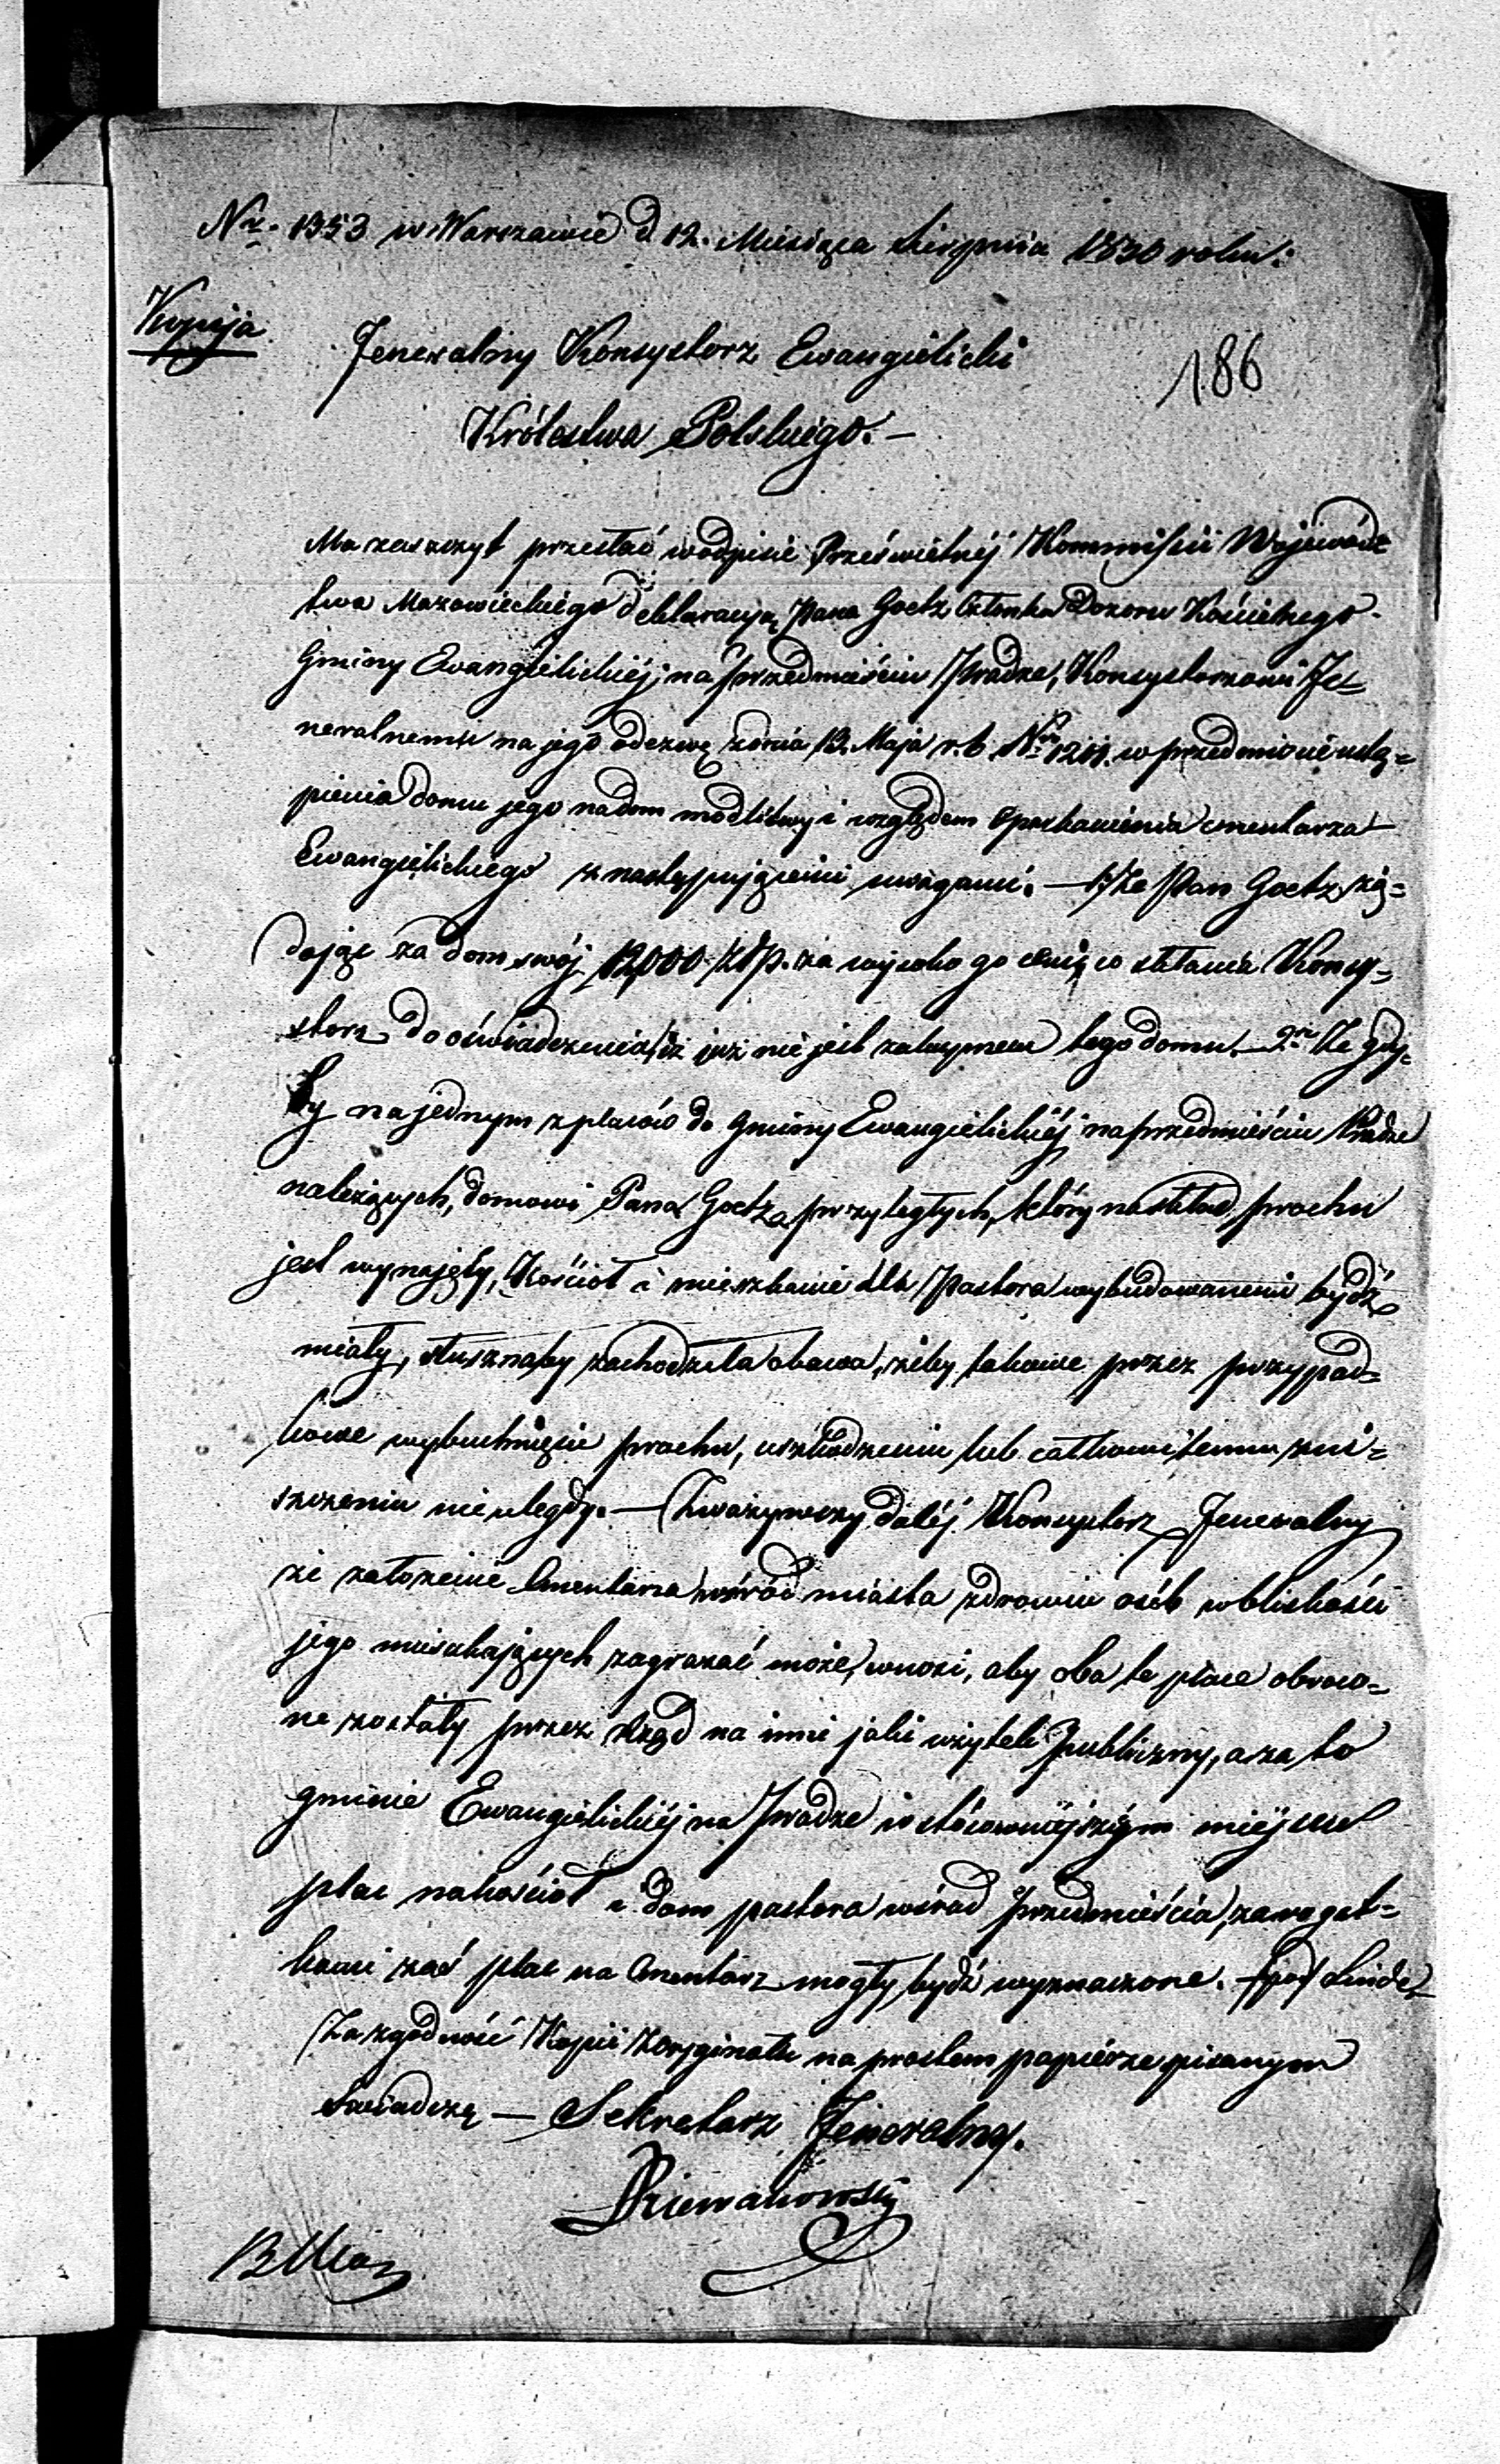 Nr. 1353 w Warszawie d. 12. Miesiąca Sierpnia 1830 roku.
Kopija
Jeneralny Konsystorz Ewangielicki
186
Królestwa Polskiego. —
Ma zaszczyt przesłać w odpisie Prześwietnéj Kommissii Wojewódz
twa Mazowieckiego deklaracyą Pana Goetz Członka Dozoru Kościelnego
Gminy Ewangielickiéj na przedmieściu Pradze, Konsystorzowi Je=
neralnemu na jego odezwę z dnia 12. Maja r. b. Nro 1211. w przedmiocie ustą=
pienia domu jego na dom modlitwy i względem oparkanienia cmentarza
Ewangielickiego z następującemi uwagami. — 1) Że Pan Goetz żą=
dając za dom swój 12,000 Złp. za wysoko go ceni, co skłania Konsy=
storz do oświadczenia, iż już nie jest za kupnem tego domu. — 2re Że gdy=
by na jednym z placów do Gminy Ewangielickiéj na przedmieściu Pradze
należących, domowi Pana Goetza przyległych, który na skład prochu
jest wynajęty, Kościół i mieszkanie dla Pastora wybudowanemi bydź
miały, słusznaby zachodziła obawa, żeby takowe przez przypad=
kowe wybuchnięcie prochu, uszkodzeniu lub całkowitemu zni=
szczeniu nie uległy. — Zważywszy daléj Konsystorz Jeneralny
że założenie Cmentarza wśród miasta zdrowiu osób w bliskości
jego mieszkających zagrażać może, wnosi, aby oba te place obróco=
ne zostały przez Rząd na inni jaki użytek publiczny, a za to
gminie Ewangielickiéj na Pradze w stósowniejszym miejscu
plac na kościół i dom pastora wśród przedmieścia, za rogat=
kami zaś plac na Cmentarz mogły bydź wyznaczone. — (pod) Linde
Za zgodność Kopii z oryginałem na prostem papierze pisanym
świadczę — Sekretarz Jeneralny.
Dziewanowski